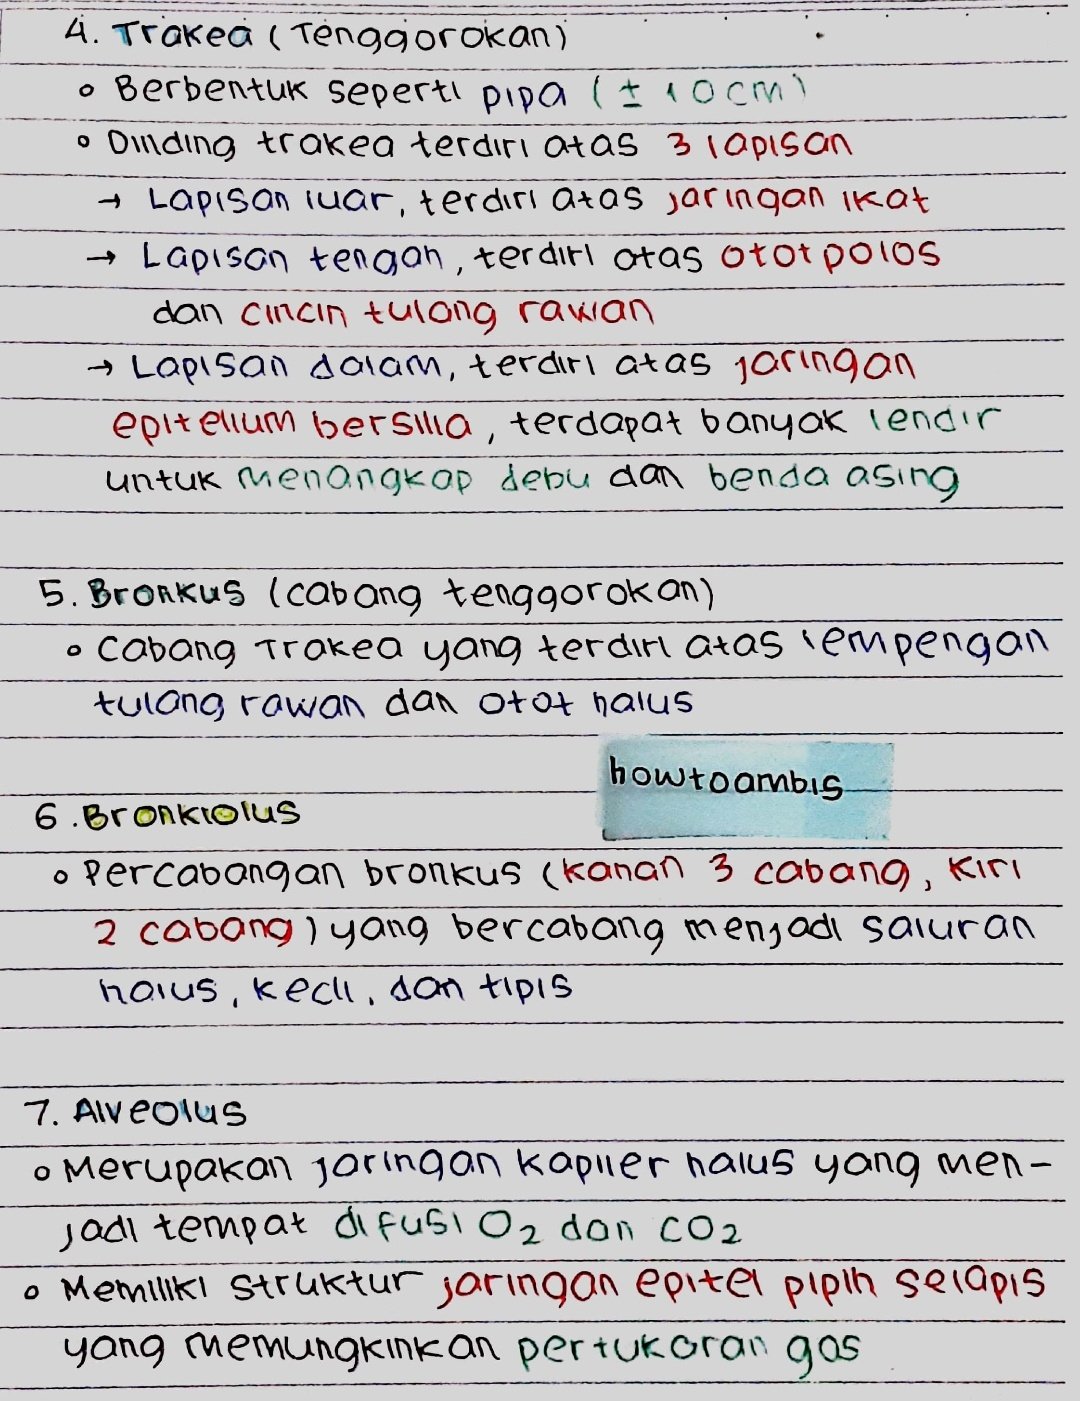 4. Trakea (Tenggorokan)
∘ Berbentuk seperti pipa (± 10cm)
∘ Dinding trakea terdiri atas 3 lapisan
→ Lapisan luar, terdiri atas jaringan ikat
→ Lapisan tengah, terdiri atas otot polos
dan cincin tulang rawan
→ Lapisan dalam, terdiri atas jaringan
epitelium bersilia, terdapat banyak lendir
untuk menangkap debu dan benda asing
5. Bronkus (cabang tenggorokan)
∘ Cabang Trakea yang terdiri atas lempengan
tulang rawan dan otot halus
howtoambis
6. Bronkiolus
∘ Percabangan bronkus (kanan 3 cabang, kiri
2 cabang) yang bercabang menjadi saluran
halus, kecil, dan tipis
7. Alveolus
∘ Merupakan jaringan kapiler halus yang men-
jadi tempat difusi O₂ dan CO₂
∘ Memiliki struktur jaringan epitel pipih selapis
yang memungkinkan pertukaran gas